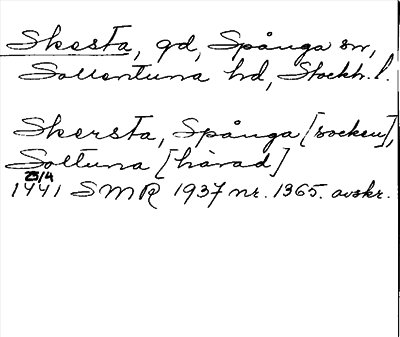 Skesta, gd, Spånga sn,
Sollentuna hd, Stockh. l.
Skersta, Spånga [socken],
Soltuna [härad]
23/4
1441 SMR 1937 nr. 1365. avskr.